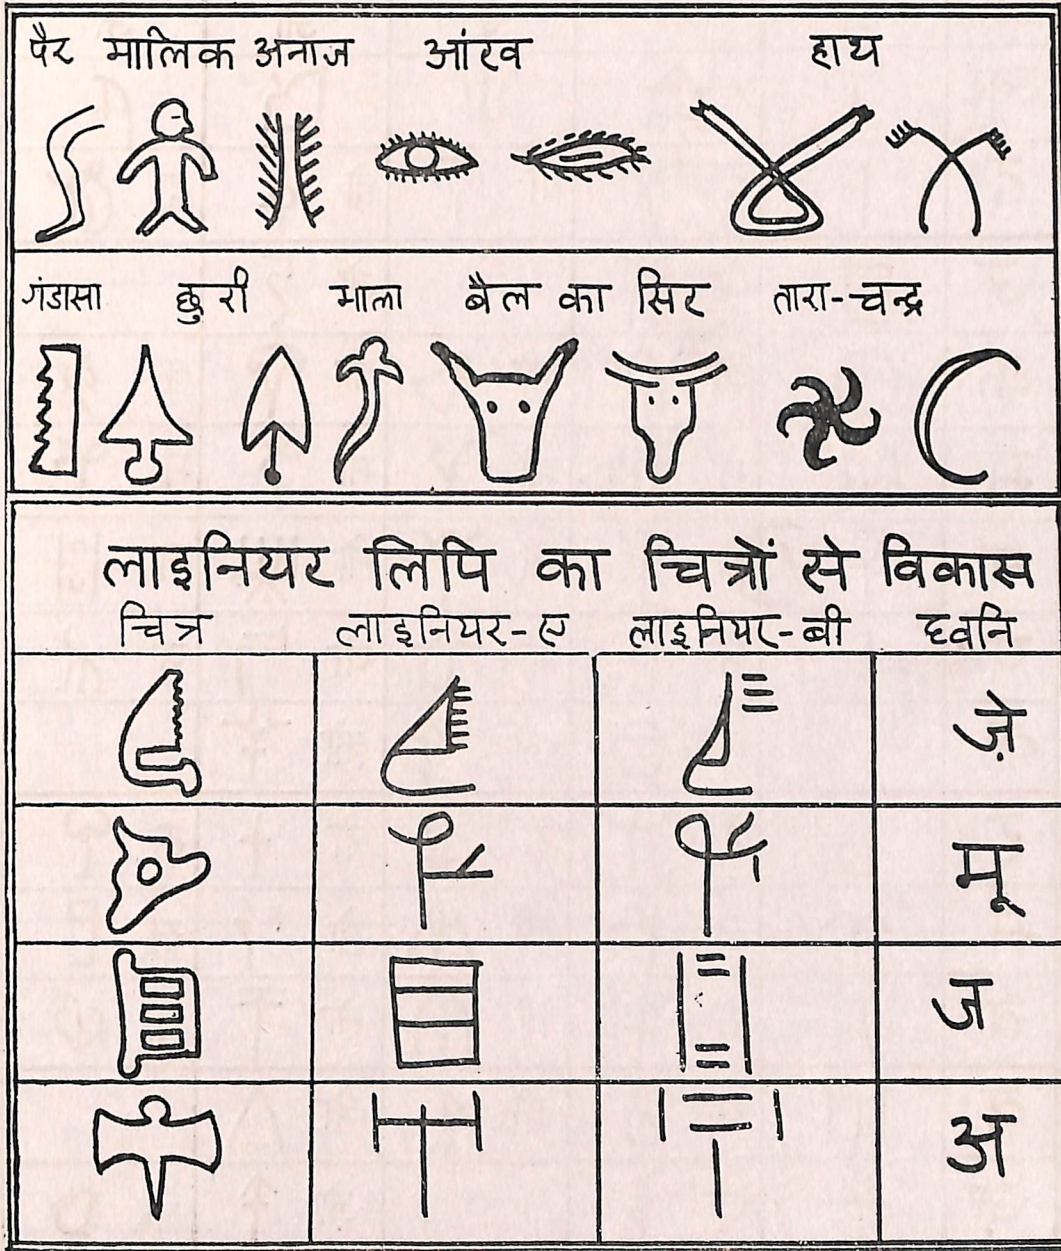 पैर मालिक अनाज आंख हाथ
गंडासा छुरी माला बैल का सिर तारा-चन्द्र
लाइनियर लिपि का चित्रों से विकास
चित्र लाइनियर-ए लाइनियर-बी ध्वनि
ज़े
मू
ज
अ